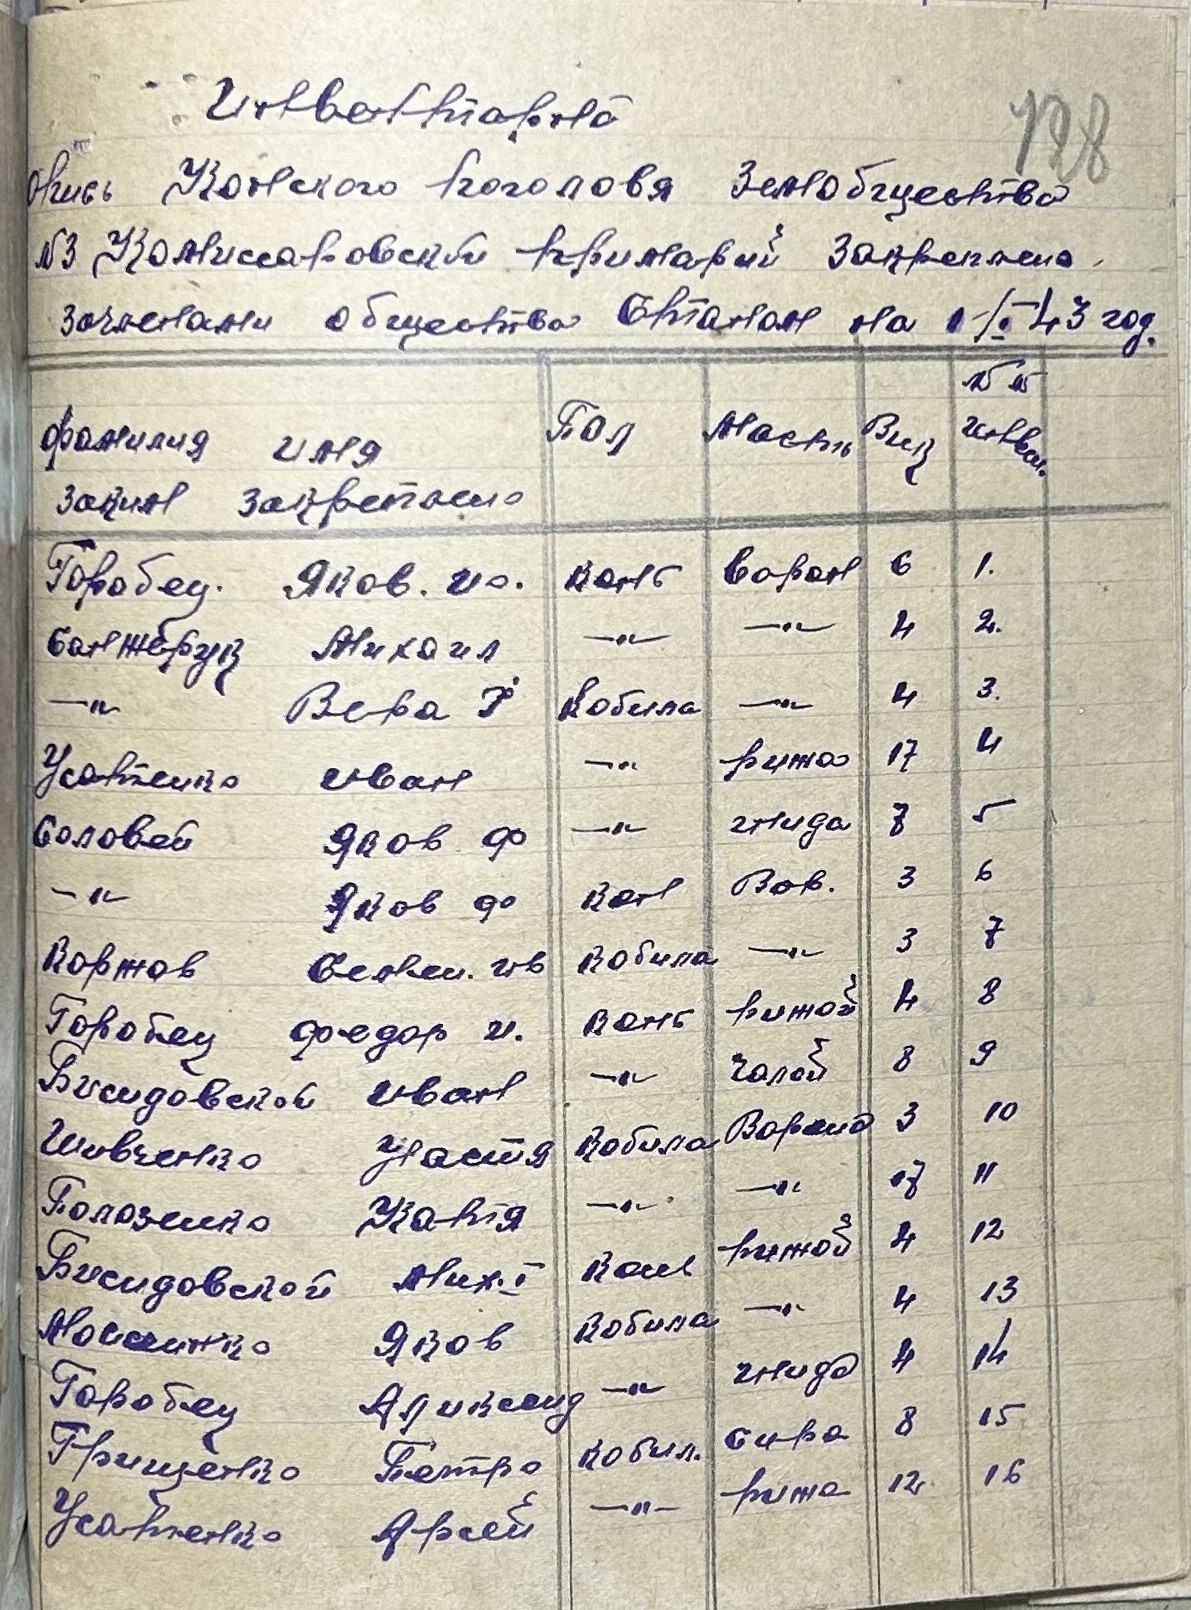 Инвентарна
128
опись Конского поголовя Земобщества
№3 Комиссаровской примарий Закреплено
зачленами общества Станом на 1/I-43 год.
фамилия имя Пол Масть Вик №№ инвен.
заким закреплено
Горобец. Яков. ио. конь воран 6 1.
Санжарук Михаил —"— —"— 4 2.
—"— Вера Г кобила —"— 4 3.
Усатенко иван —"— рижа 17 4
Соловей Яков ф —"— гнида 7 5
—"— Яков ф кон Вов. 3 6
Коржов Семен. ив кобила —"— 3 7
Горобец федор и. конь рижой 4 8
Бисидовской иван —"— Чалой 8 9
Шивченко Настя кобила Ворона 3 10
Полозенко Катя —"— —"— 17 11
Бисидовской Мих. I кон рижой 4 12
Моисинко Яков кобила —"— 4 13
Горобец Аликсанд —"— гнида 4 14
Грищенко Петро кобил. Сира 8 15
Усатенко Арсей —"— рижа 12 16